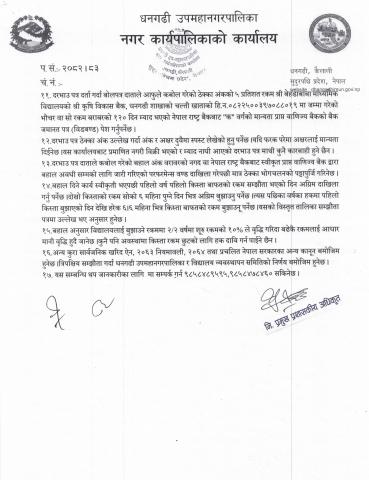 धनगढी उपमहानगरपालिका
नगर कार्यपालिकाको कार्यालय
धनगढी, कैलाली
सुदूरपश्चिम प्रदेश, नेपाल
प सं: २०८२।८३
च. नं.:
११. दरभाउ पत्र दर्ता गर्दा बोलपत्र दाताले आफुले कबोल गरेको ठेक्का अंकको ५ प्रतिशत रकम श्री माध्यमिक
विद्यालयको श्री कृषि विकास बैंक, धनगढी शाखाको चल्ती खाताको हि.न. मा जम्मा गरेको
भौचर वा सो रकम बराबरको १२० दिन म्याद भएको नेपाल राष्ट्र बैंकबाट "क" वर्गको मान्यता प्राप्त वाणिज्य बैंकको बैंक
जमानत पत्र (विडबण्ड) पेश गर्नुपर्नेछ।
१२. दरभाउ पत्रमा ठेक्का अंक उल्लेख गर्दा अंक र अक्षर दुवैमा स्पस्ट लेखेको हुनु पर्नेछ। यदि फरक परेमा अक्षरलाई मान्यता
दिईनेछ। यस कार्यालयबाट प्रमाणित नगरी बिक्री भएको र म्याद नाघी आएको दरभाउ पत्र माथी कुनै कारबाही हुने छैन।
१३. दरभाउ पत्र दाताले कबोल गरेको बहाल अंक बराबरको नगद वा नेपाल राष्ट्र बैंकबाट स्वीकृत प्राप्त वाणिज्य बैंक द्वारा
बहाल अवधी सम्मको लागि जारी गरिएको परफरमेन्स वण्ड दाखिला गरेपछी मात्र ठेक्का भोगचलनको पट्टापुर्जि गरिनेछ।
१४. बहाल दिने कार्य स्वीकृती भएपछी पहिलो वर्ष पहिलो किस्ता बाफतको रकम सम्झौता भएको दिन अग्रिम दाखिला
गर्नु पर्नेछ। दोस्रो किस्ताको रकम सोको ६ महिना पुग्ने दिन भित्र अग्रिम बुझाउनु पर्नेछ। त्यस पछिका वर्षका हकमा पहिलो
किस्ता बुझाएको दिन देखि हरेक ६/६ महिना भित्र किस्ता बाफतको रकम बुझाउनु पर्नेछ। यसको विस्तृत तालिका सम्झौता
पत्रमा उल्लेख भए अनुसार हुनेछ।
१५. बहाल अनुसार विद्यालयलाई बुझाउने रकममा २/२ वर्षमा शूरु रकमको १०% ले वृद्धि गरिदा बढेकै रकमलाई आधार
मानी वृद्धि हुदै जानेछ। कुनै पनि अवस्थामा किस्ता रकम छुटको लागि हक दाबि गर्न पाईने छैन।
१६. अन्य कुरा सार्वजनिक खरिद ऐन, २०६३ नियमावली, २०६४ तथा प्रचलित नेपाल सरकारका अन्य कानून बमोजिम
हुनेछ। त्रिपक्षिय सम्झौता गर्दा धनगढी उपमहानगरपालिका र विद्यालय व्यवस्थापन समितिको निर्णय बमोजिम हुनेछ।
१७. यस सम्बन्धि थप जानकारीका लागि मा सम्पर्क गर्न ९८५८४८९५९५,९८५८४७८४६० सकिनेछ।
नि. प्रमुख प्रशासकीय अधिकृत